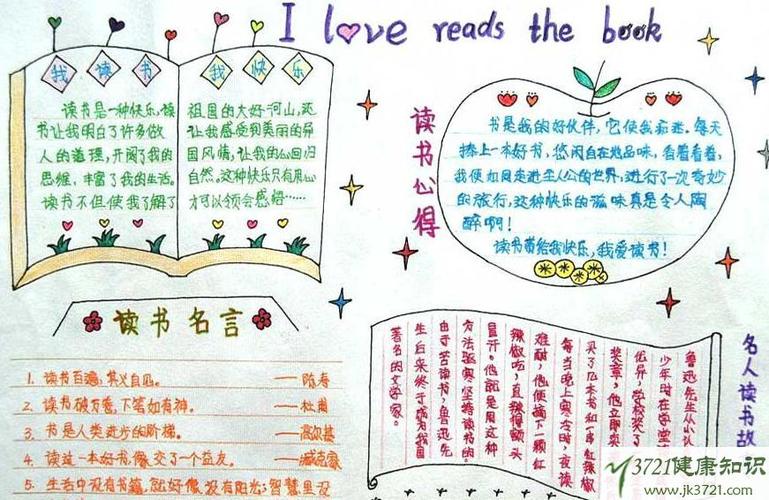 I love reads the book
我读书 我快乐
读书是一种快乐,读
书让我明白了许多做
人的道理,开阔了我的
思维,丰富了我的生活。
读书不但使我了解了
祖国的大好河山,还
让我感受到美丽的异
国风情,让我的心回归
自然。这种快乐只有用心
才可以领会感悟……
读书心得
书是我的好伙伴,它使我痴迷。每天
捧上一本好书,悠闲自在地品味,看着看着,
我便如同走进主人公的世界,进行了一次奇妙
的旅行,这种快乐的滋味真是令人陶
醉啊!
读书带给我快乐,我爱读书!
读书名言
1. 读书百遍,其义自见。 ——陈寿
2. 读书破万卷,下笔如有神。 ——杜甫
3. 书是人类进步的阶梯。 ——高尔基
4. 读过一本好书,像交了一个益友。 ——臧克家
5. 生活中没有书籍,就好像没有阳光;智慧里没
名人读书故
鲁迅先生从小认
少年时在学堂
优异,学校奖了
奖章,他立即卖
买了几本书和一串红辣椒
每当晚上寒冷时,夜读
难耐,他便摘下一颗红
辣椒吃,直辣得额头
冒汗。他就是用这种
方法驱寒坚持读书的。
由于苦读书,鲁迅先
生后来终于成为我国
著名的文学家。
3721健康知识
www.jk3721.com